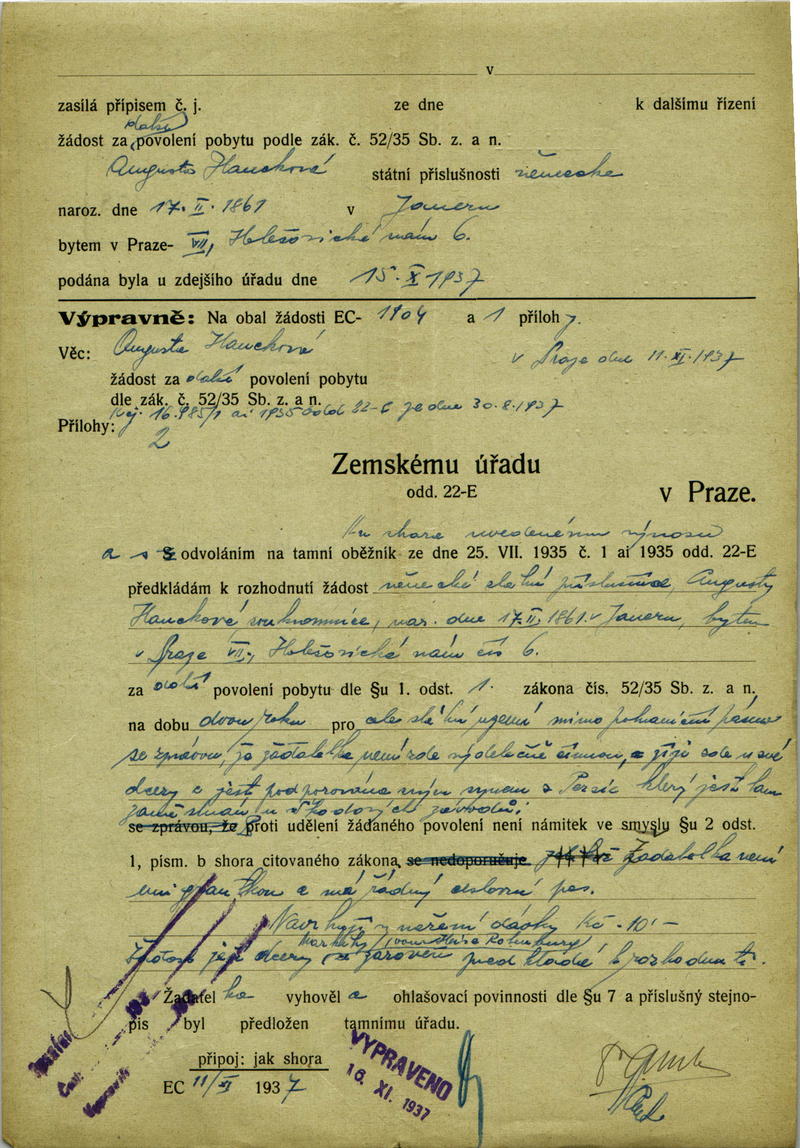 v
zasílá přípisem č. j. ze dne k dalšímu řízení
další
žádost za povolení pobytu podle zák. č. 52/35 Sb. z. a n.
Augusta Hauckové státní příslušnosti německé
naroz. dne 17. II. 1861 v Jauern
bytem v Praze- VII, Holešovické nám 6.
podána byla u zdejšího úřadu dne 15. X 1937
Výpravně: Na obal žádosti EC- 1904 a 1 příloh y.
Věc: Augusta Hauckové
v Praze dne 11. XI. 1937
žádost za další povolení pobytu
dle zák. č. 52/35 Sb. z. a n.
16.985/1 ai 1935 odd 22-E ze dne 30.8.1937
Přílohy: 2
Zemskému úřadu
odd. 22-E v Praze.
shora uvedenému výnosu
a s odvoláním na tamní oběžník ze dne 25. VII. 1935 č. 1 ai 1935 odd. 22-E
předkládám k rozhodnutí žádost německé státní příslušnice, Augusty
Hauckové soukromnice, nar. dne 17.II.1861 v Jauern, bytem
v Praze VII., Holešovické nám čís 6.
za další povolení pobytu dle §u 1. odst. 1. zákona čís. 52/35 Sb. z. a n.
na dobu dvou roků pro celé státní území mimo pohraniční pásmo
se zprávou, že žadatelka není zde výdělečně činnou, a žije zde u své
dcery a jest podporována svým synem z Persie který jest tam
zaměstnán u Škodových závodů;
se zprávou, že proti udělení žádaného povolení není námitek ve smyslu §u 2 odst.
1, písm. b shora citovaného zákona, se nedoporučuje Žadatelka není
emigrantkou a má řádný cestovní pas.
Navrhuji vyměření dávky Kč -10'-
Markéty Rotenburg
Žádost její dcery zároveň předkládá k rozhodnutí.
Žadatel ka vyhověl a ohlašovací povinnosti dle §u 7 a příslušný stejno-
pis byl předložen tamnímu úřadu.
připoj: jak shora
EC 11/XI 1937
VYPRAVENO
16. XI. 1937